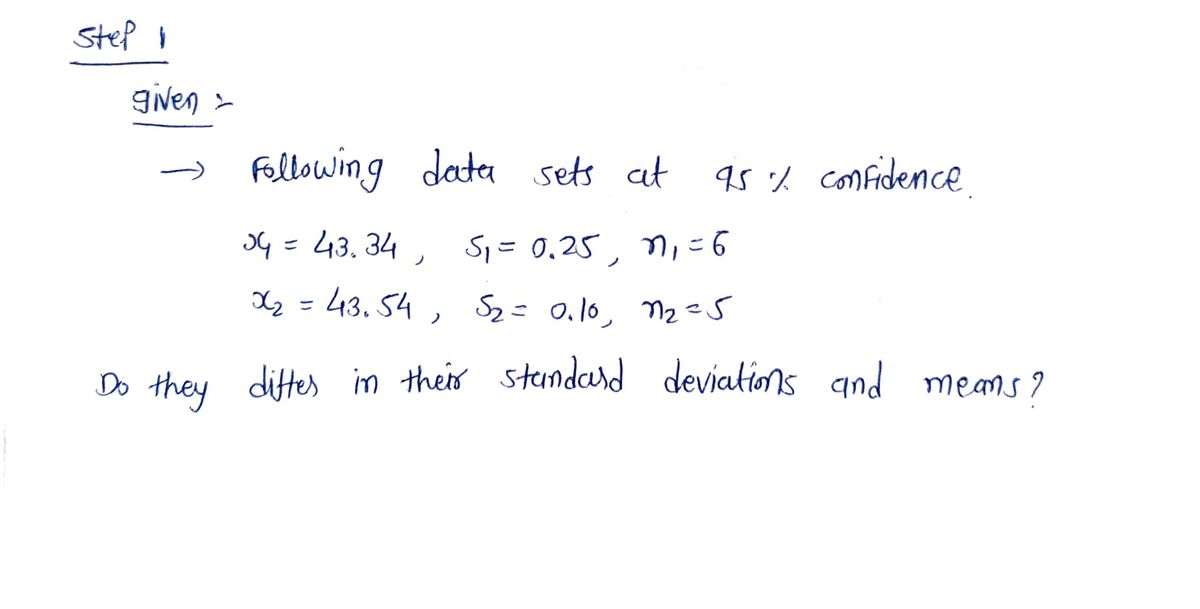 Step 1
given :-
→ Following data sets at 95 % confidence.
x1 = 43.34, S1 = 0.25, n1 = 6
x2 = 43.54, S2 = 0.10, n2 = 5
Do they differ in their standard deviations and means?